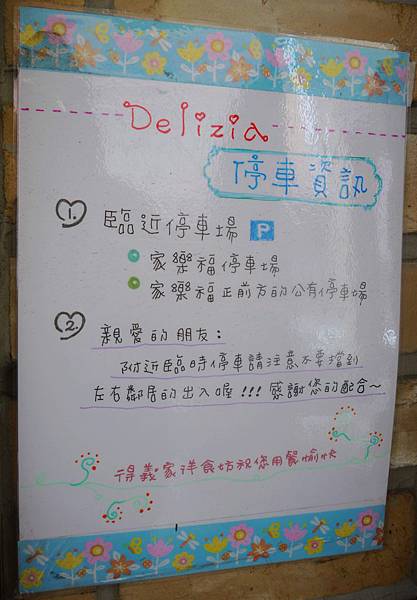 Delizia
停車資訊
1. 臨近停車場 P
家樂福停車場
家樂福正前方的公有停車場
2. 親愛的朋友：
附近臨時停車請注意不要擋到
左右鄰居的出入喔!!! 感謝您的配合~
得義家洋食坊祝您用餐愉快